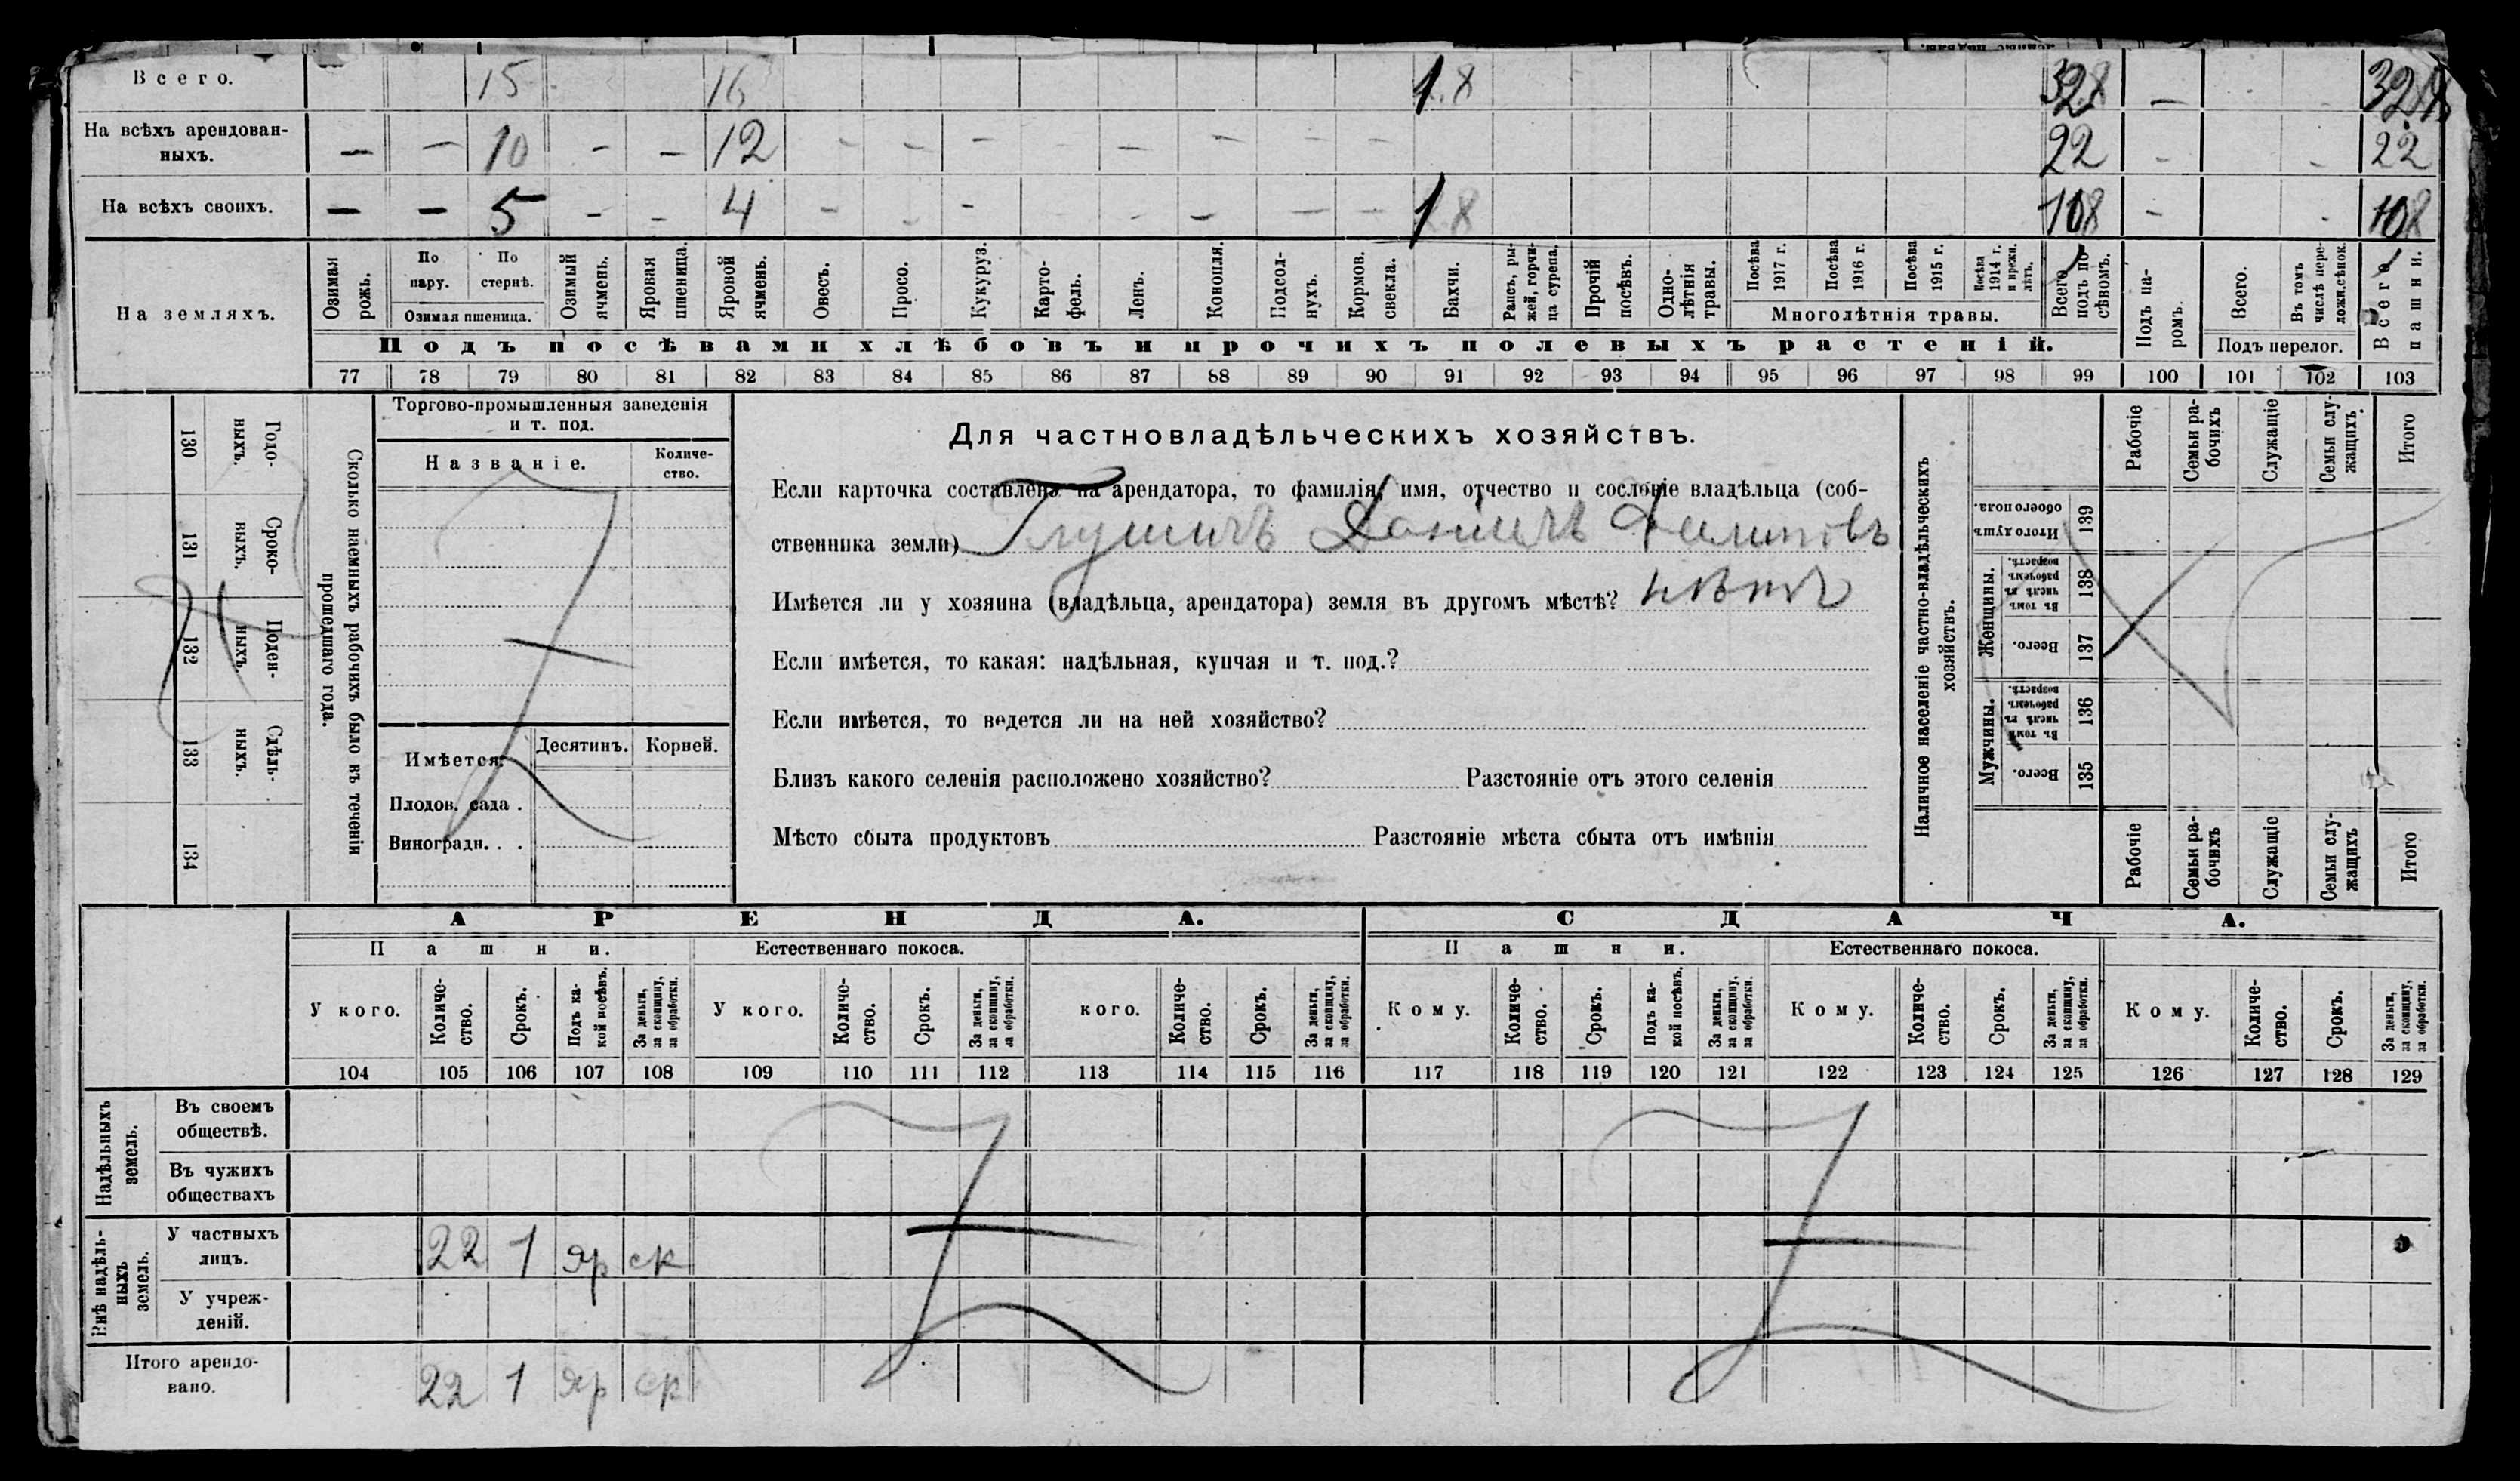 Всего. — 15 16 1.8 32.8 — 32.8
На всѣхъ арендован-
ныхъ. — — 10 — — 12 — — — — — — — — 22 — — 22
На всѣхъ своихъ. — — 5 — — 4 — — — — — — — — 1 8 10 8 — — 10 8
На земляхъ.
Озимая рожь.
По пару.
По стернѣ.
Озимая пшеница.
Озимый ячмень.
Яровая пшеница.
Яровой ячмень.
Овесъ.
Просо.
Кукуруз.
Карто-
фель.
Ленъ.
Конопля.
Подсол-
нухъ.
Кормов. свекла.
Бахчи.
Рапсъ, ры-
жей, горчи-
ца сурепа.
Прочій посѣвъ.
Одно-
лѣтнія травы.
Посѣва 1917 г.
Посѣва 1916 г.
Посѣва 1915 г.
Посѣва 1914 г. и прежн. лѣтъ.
Многолѣтнія травы.
Всего подъ по-
сѣвомъ.
Подъ па-
ромъ.
Всего.
Въ томъ числѣ пере-
ложн. сѣнок.
Подъ перелог.
Всего пашни.
Подъ посѣвами хлѣбовъ и прочихъ полевыхъ растеній.
77 78 79 80 81 82 83 84 85 86 87 88 89 90 91 92 93 94 95 96 97 98 99 100 101 102 103
Сколько наемныхъ рабочихъ было въ теченіи
прошедшаго года.
Годо-
выхъ.
130
Сроко-
выхъ.
131
Поден-
ныхъ.
132
Сдѣль-
ныхъ.
133
134
Торгово-промышленныя заведенія
и т. под.
Названіе.
Количе-
ство.
Имѣется:
Десятинъ. Корней.
Плодов. сада .
Виноградн. . .
Для частновладѣльческихъ хозяйствъ.
Если карточка составлена на арендатора, то фамилія, имя, отчество и сословіе владѣльца (соб-
ственника земли)
Имѣется ли у хозяина (владѣльца, арендатора) земля въ другомъ мѣстѣ? нѣтъ
Если имѣется, то какая: надѣльная, купчая и т. под.?
Если имѣется, то ведется ли на ней хозяйство?
Близъ какого селенія расположено хозяйство? Разстояніе отъ этого селенія
Мѣсто сбыта продуктовъ Разстояніе мѣста сбыта отъ имѣнія
Наличное населеніе частно-владѣльческихъ
хозяйствъ.
Рабочіе
Семьи ра-
бочихъ
Служащіе
Семьи слу-
жащихъ.
Итого
Итого душъ обоего пола.
139
Женщины.
Въ томъ числѣ въ рабочемъ возрастѣ.
138
Всего.
137
Мужчины.
Въ томъ числѣ въ рабочемъ возрастѣ.
136
Всего.
135
Рабочіе
Семьи ра-
бочихъ
Служащіе
Семьи слу-
жащихъ
Итого
АРЕНДА. СДАЧА.
Пашни. Естественнаго покоса. Пашни. Естественнаго покоса.
У кого.
Количе-
ство.
Срокъ.
Подъ ка-
кой посѣвъ.
За деньги,
за скопщину,
за обработки.
У кого.
Количе-
ство.
Срокъ.
За деньги,
за скопщину,
за обработки.
кого.
Количе-
ство.
Срокъ.
За деньги,
за скопщину,
за обработки.
Кому.
Количе-
ство.
Срокъ.
Подъ ка-
кой посѣвъ.
За деньги,
за скопщину,
за обработки.
Кому.
Количе-
ство.
Срокъ.
За деньги,
за скопщину,
за обработки.
Кому.
Количе-
ство.
Срокъ.
За деньги,
за скопщину,
за обработки.
104 105 106 107 108 109 110 111 112 113 114 115 116 117 118 119 120 121 122 123 124 125 126 127 128 129
Надѣльныхъ
земель.
Въ своемъ
обществѣ.
Въ чужихъ
обществахъ
Внѣ надѣль-
ныхъ
земель.
У частныхъ
лицъ. 22 1 яр ск
У учреж-
деній.
Итого арендо-
вано. 22 1 яр ск